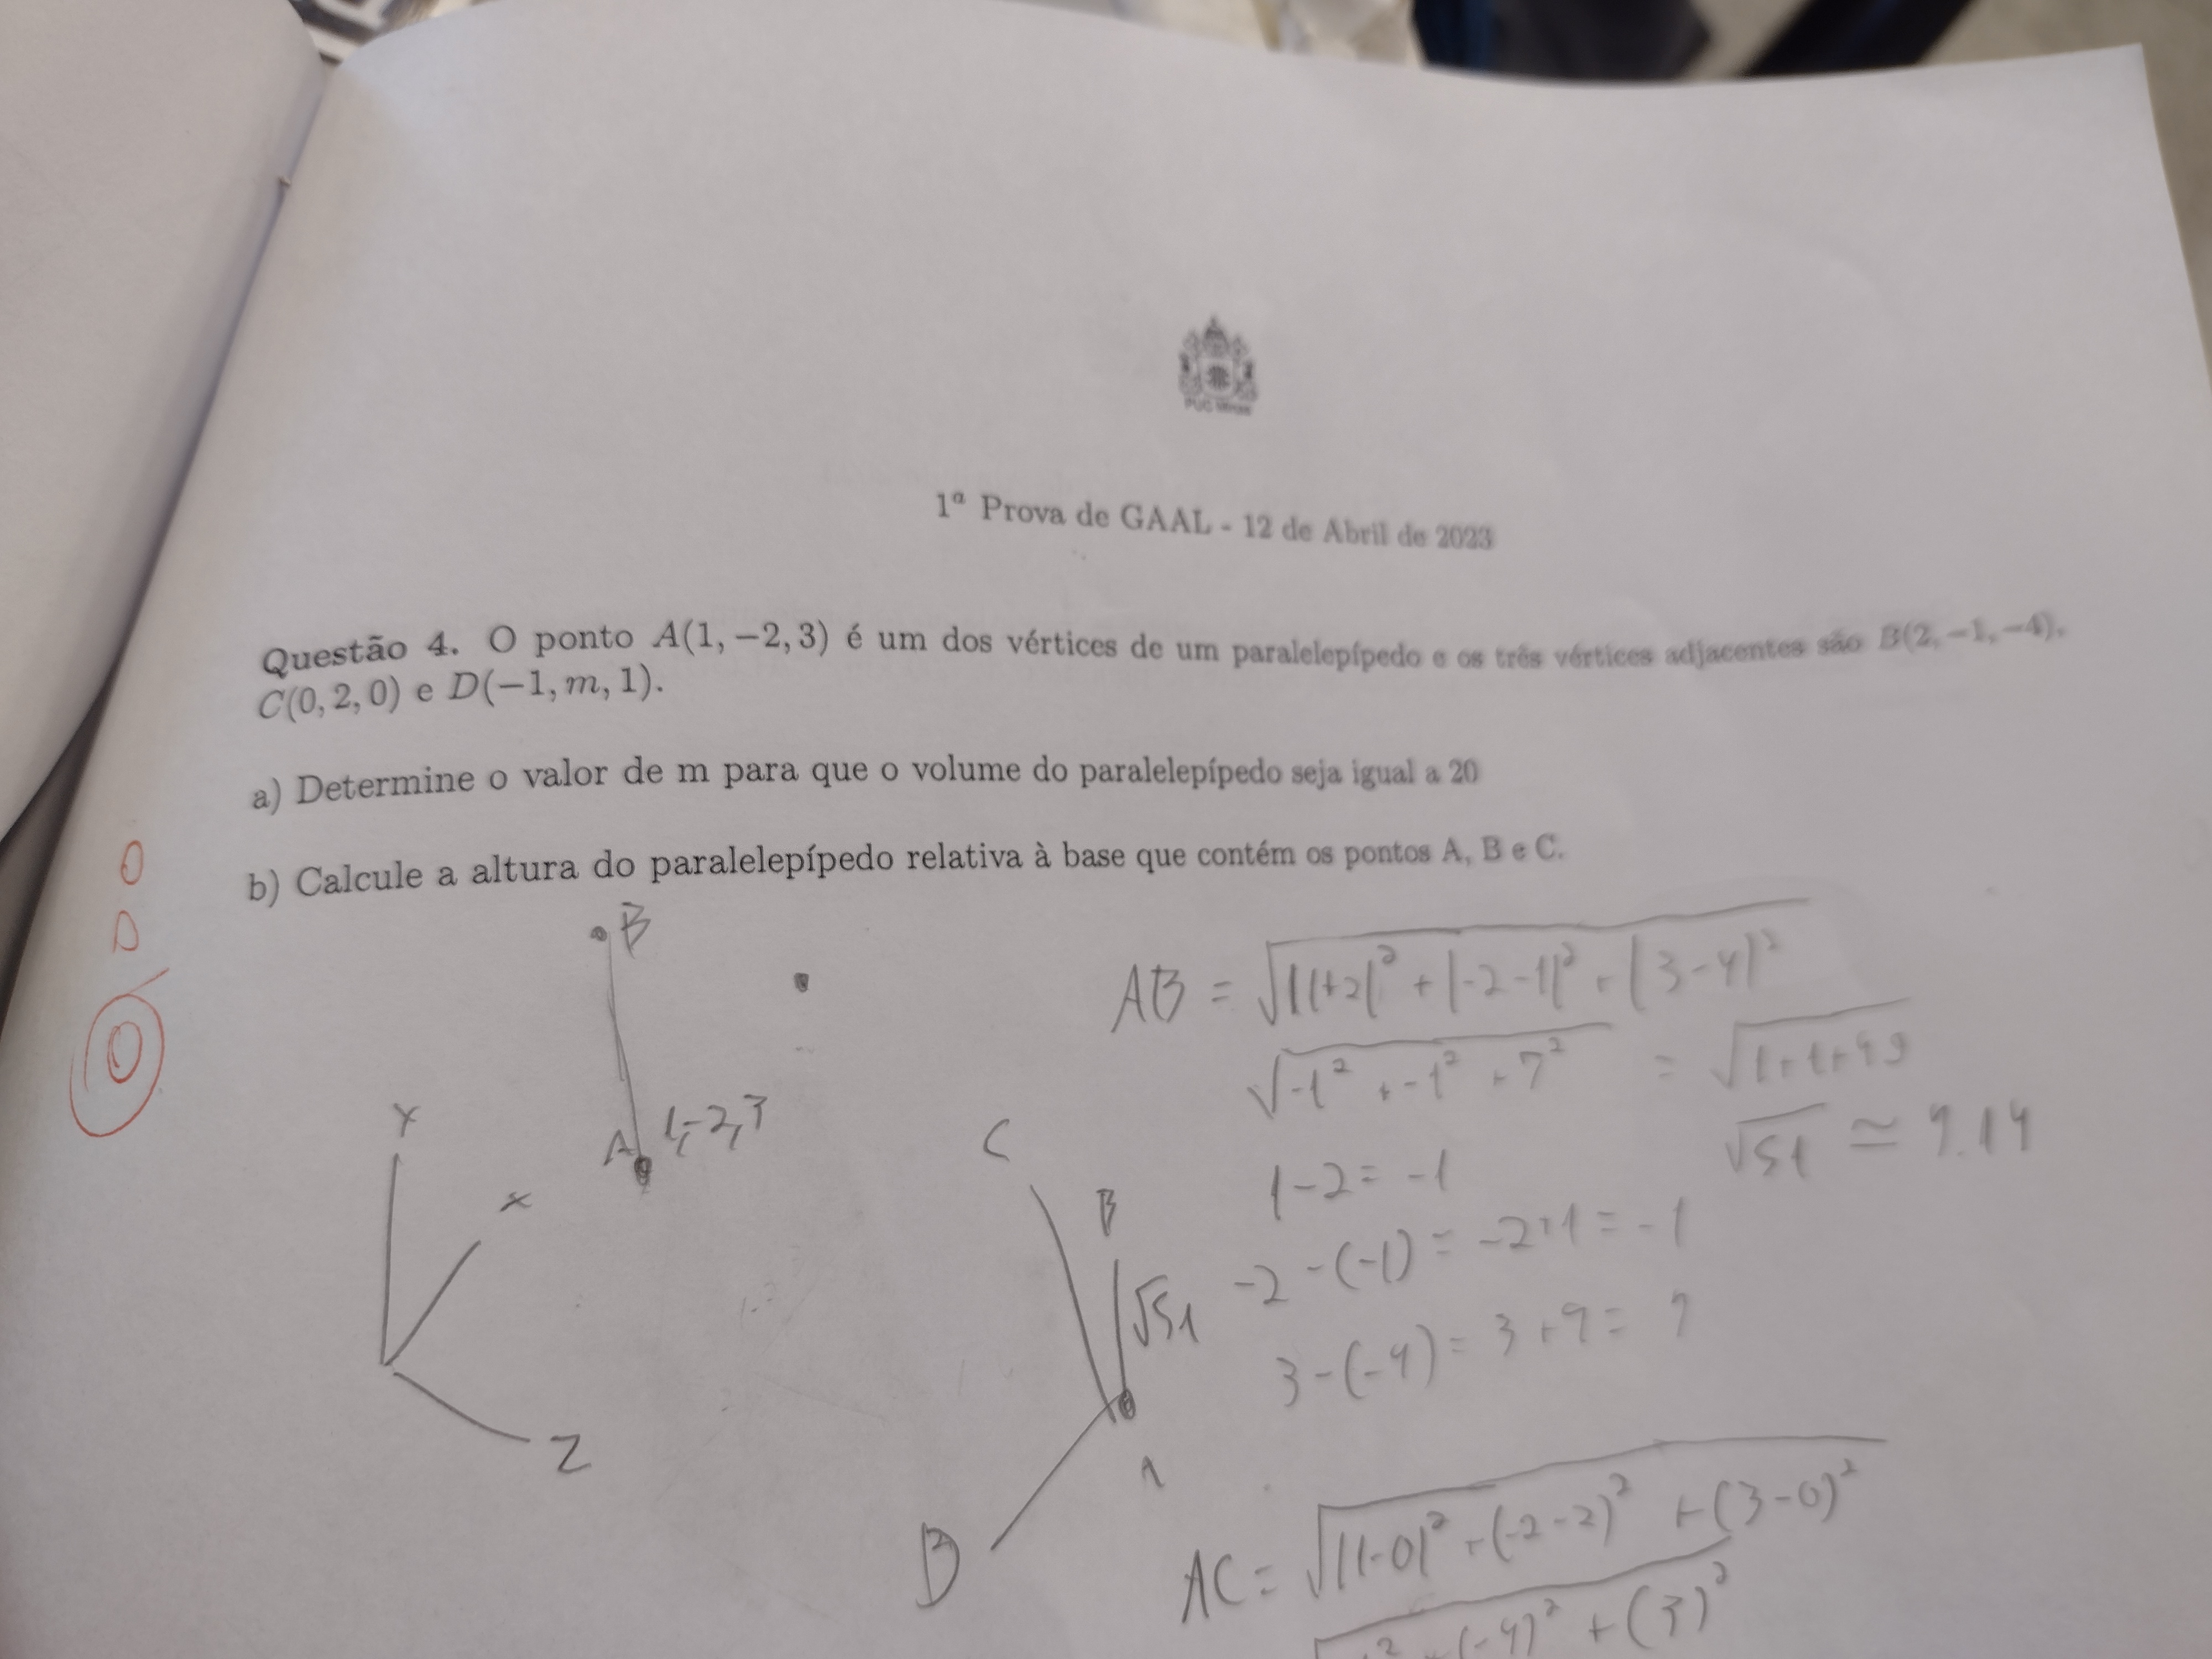 PUC Minas
1ª Prova de GAAL - 12 de Abril de 2023
Questão 4. O ponto A(1, −2, 3) é um dos vértices de um paralelepípedo e os três vértices adjacentes são B(2, −1, −4),
C(0, 2, 0) e D(−1, m, 1).
a) Determine o valor de m para que o volume do paralelepípedo seja igual a 20
b) Calcule a altura do paralelepípedo relativa à base que contém os pontos A, B e C.
B
A 1,-2,3
Y
x
Z
C
B
√51
A
D
AB = √(1+2)² + (-2-1)² + (3-4)²
√-1² + -1² + 7² = √1+1+49
√51 ≃ 7.14
1-2= -1
-2 -(-1) = -2+1 = -1
3-(-4) = 3+4= 7
AC = √(1-0)² + (-2-2)² + (3-0)²
(-4)² + (3)²